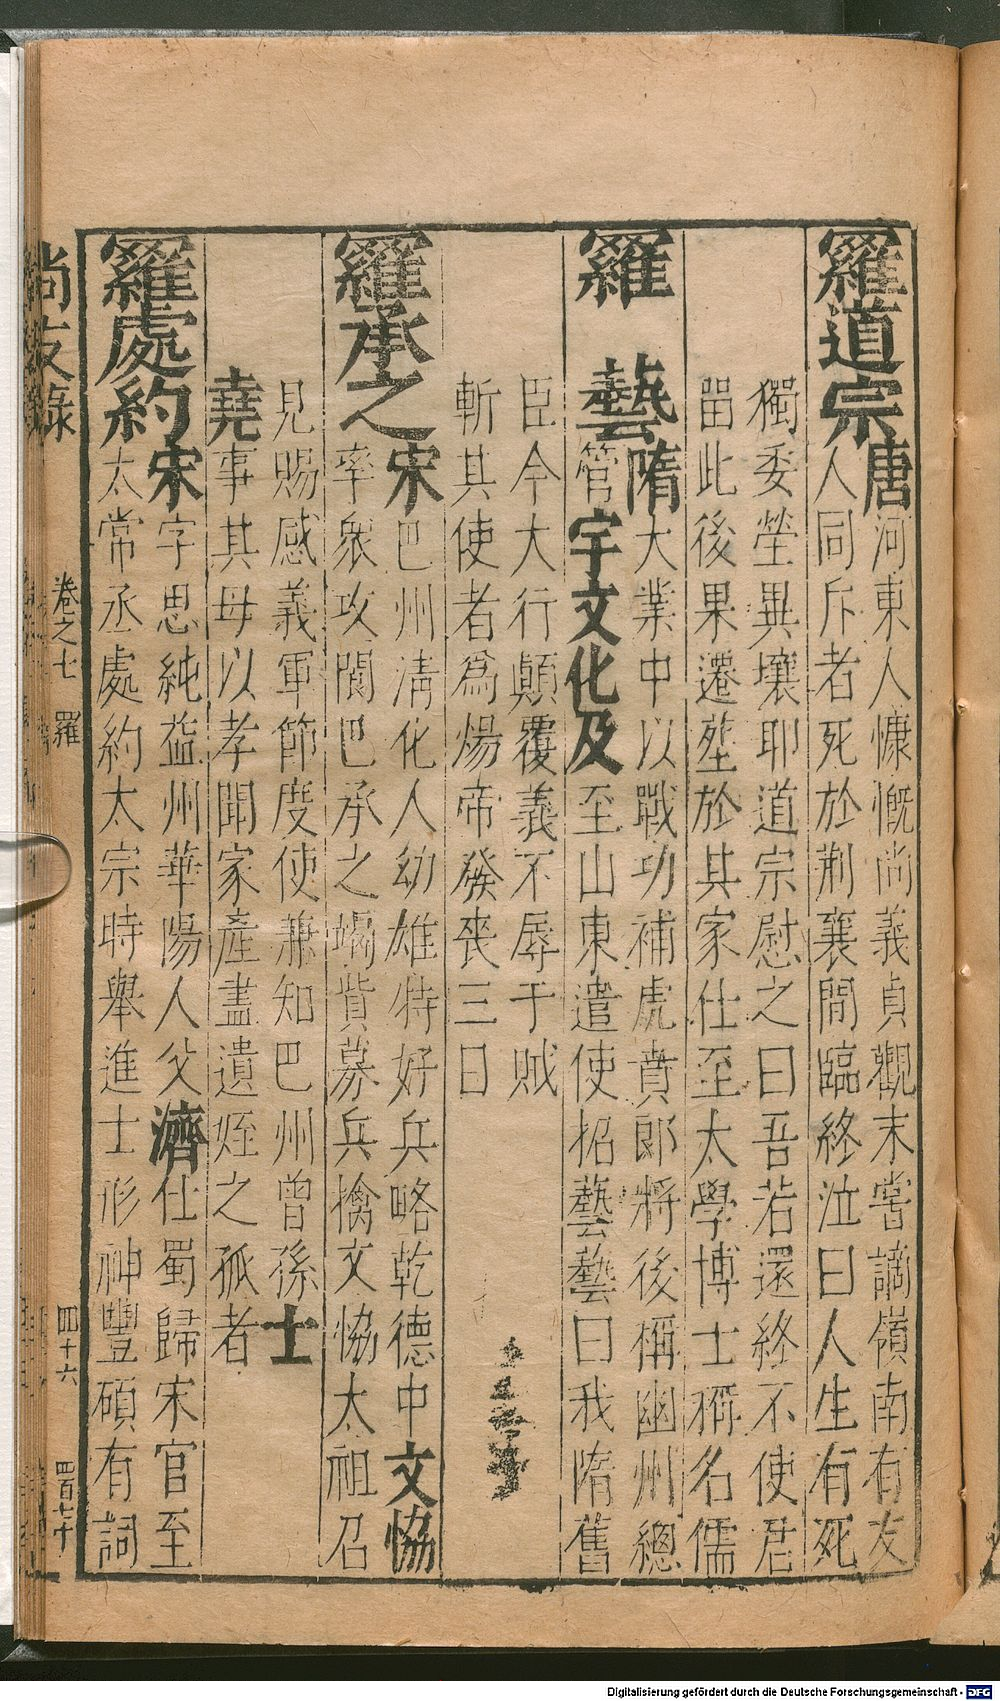 羅道宗唐河東人慷慨尚義貞觀末嘗謫嶺南有友
人同斥者死於荆襄間臨終泣曰人生有死
獨委塋異壤耶道宗慰之曰吾若還終不使君
留此後果遷塟於其家仕至太學博士稱名儒
羅藝隋大業中以戰功補虎賁郎將後稱幽州總
管宇文化及至山東遣使招藝藝曰我隋舊
臣今大行顛覆義不辱于賊
斬其使者爲煬帝發丧三日
羅承之宋巴州清化人幼雄特好兵略乾德中文恊
率衆攻閬巴承之竭貲募兵擒文恊太祖召
見賜感義軍節度使兼知巴州曾孫士
堯事其母以孝聞家產盡遺姪之孤者
羅處約宋字思純益州華陽人父濟仕蜀歸宋官至
太常丞處約太宗時舉進士形神豐碩有詞
尚友錄
卷之七 羅
四十六
四百七十
Digitalisierung gefördert durch die Deutsche Forschungsgemeinschaft - DFG